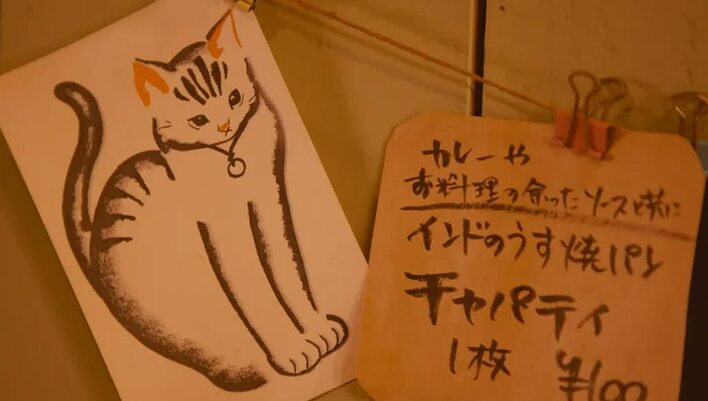 カレーや
お料理の余ったソースと共に
インドのうす焼パン
チャパティ
1枚
¥100